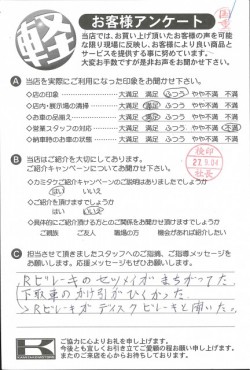 国産
軽
お客様アンケート
当店では、お買い上げ頂いたお客様の声を可能
な限り現場に反映し、お客様により良い商品と
サービスを提供する事に努めています。
大変お手数ですが是非お声をお聞かせ下さい。
A 当店を実際にご利用になった印象をお聞かせ下さい。
◇店の印象 大満足 満足 ふつう やや不満 不満
◇店内・展示場の清掃 大満足 満足 ふつう やや不満 不満
◇お車の品揃え 大満足 満足 ふつう やや不満 不満
◇営業スタッフの対応 大満足 満足 ふつう やや不満 不満
◇納車時のお車の状態 大満足 満足 ふつう やや不満 不満
B 当店はご紹介を大切にしております。
ご紹介キャンペーンについてお聞かせ下さい。
検印
27.9.04
社長
◇カミタケご紹介キャンペーンのご説明はありましたでしょうか
はい いいえ
◇ご紹介を頂けますでしょうか
はい いいえ
◇具体的にご紹介頂ける方とのご関係をお聞かせ頂けますでしょうか
ご親族 ご友人 職場の方 機会があれば紹介したい
C 担当させて頂きましたスタッフへのご指摘、ご指導メッセージを
お願いします。応援メッセージもぜひお願いします。
Rブレーキのセツメイがまちがってた。
下取車のかけ引がひくかった。
→Rブレーキがディスクブレーキと聞いた。
K
ご協力に心よりお礼を申し上げます。
今後とも宜しくお引き立てご愛顧の程お願い申し上げます。
またのご来店を心からお待ちしております。